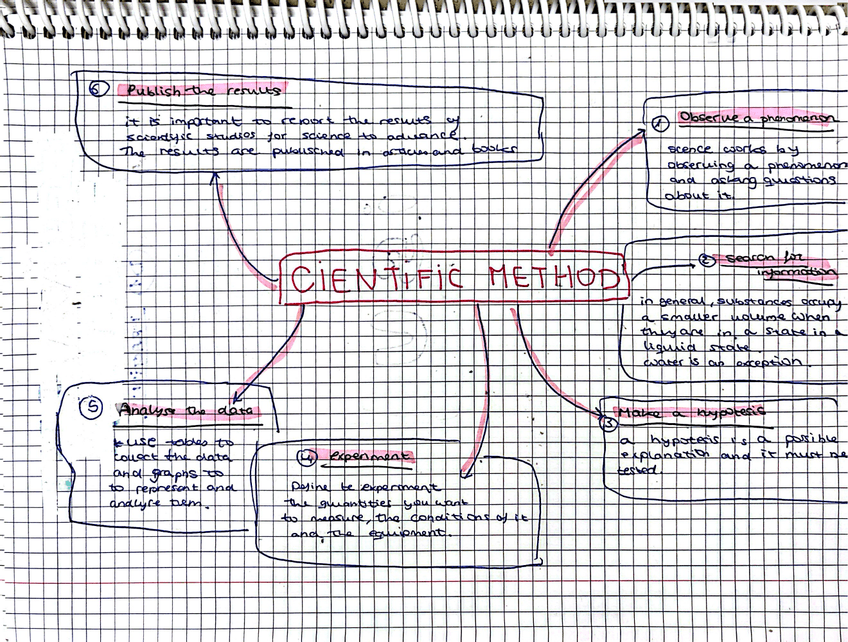 CIENTIFIC METHOD
1 Observe a phenomenon
scence works by
observing a phenomenon
and asking questions
about it.
2 search for
information
in general, substances occupy
a smaller volume when
they are in a state in a
liquid state.
water is an exception.
3 Make a hypotesis
a hypotesis is a posible
explanation and it must be
tested.
4 experiment
Define te experiment
the quantities you want
to measure, the conditions of it
and the equipment.
5 Analyse the data
use tables to
collect the data
and graphs to
to represent and
analyse them.
6 Publish the results
it is important to report the results of
studies for science to advance.
The results are publisched in articles and books